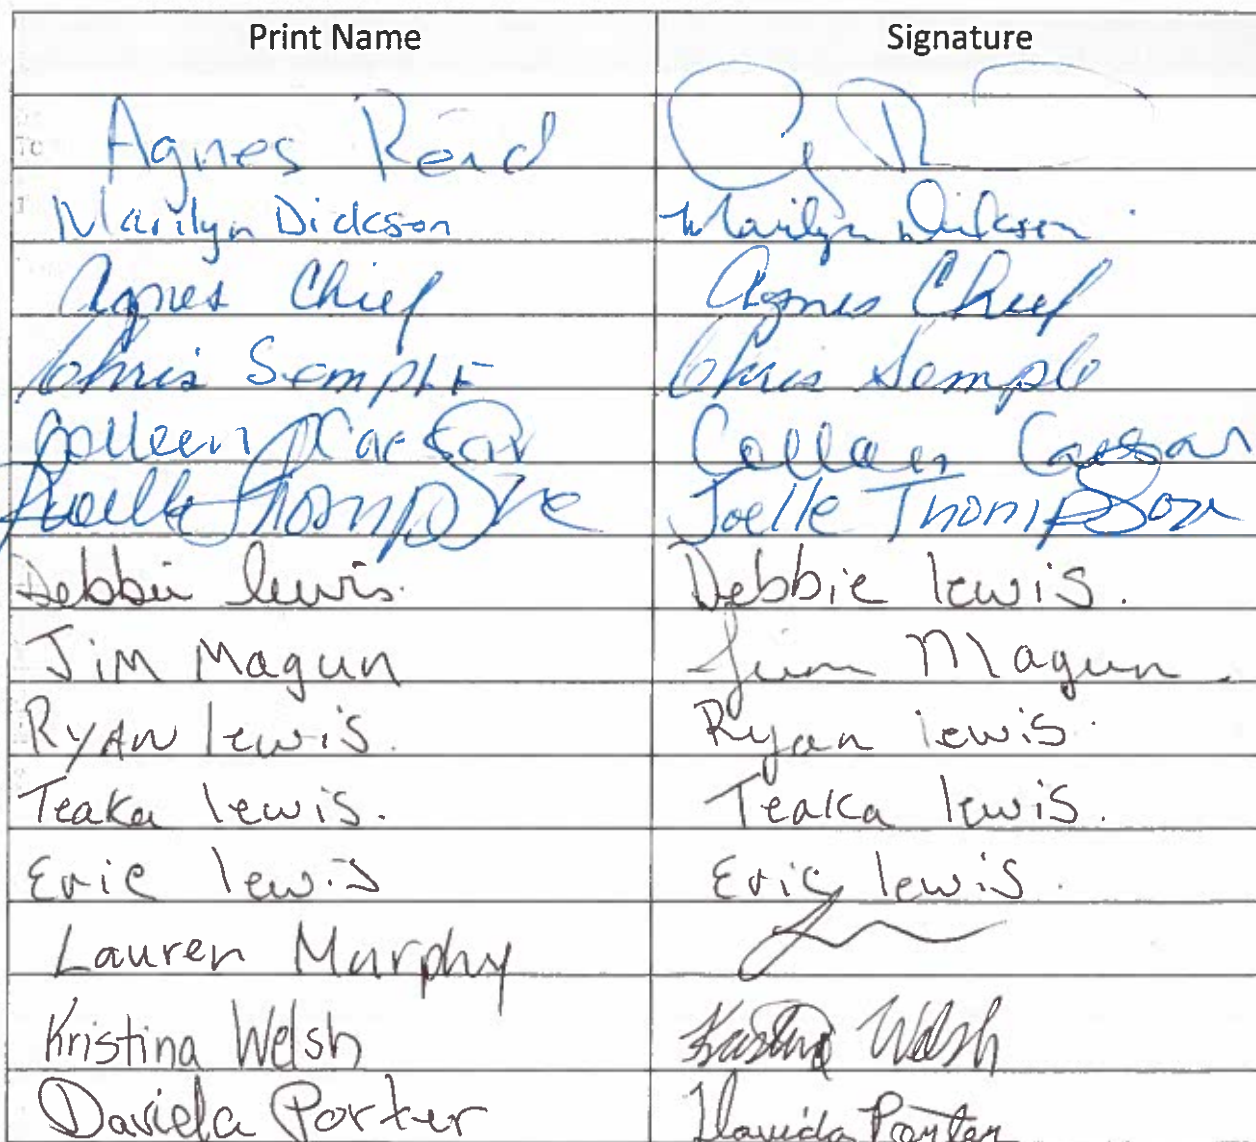 Print Name Signature
Agnes Reid
Marilyn Dickson Marilyn Dickson
Agnes Chief Agnes Chief
Chris Semple Chris Semple
Colleen Colleen
Joelle Thompson Joelle Thompson
Debbie lewis. Debbie lewis.
Jim Magun Jim Magun.
RYAN lewis. Ryan lewis.
Teaka lewis. Teaka lewis.
Eric lewis Eric lewis.
Lauren Murphy
Kristina Welsh Kristina Welsh
Porter Porter